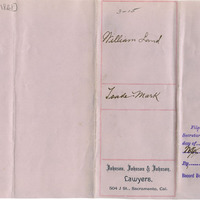 1861]
William Land
Trade Mark
Johnson, Johnson & Johnson,
Lawyers,
504 J St., Sacramento, Cal.
Filed
Secretar
day of
By
Record B